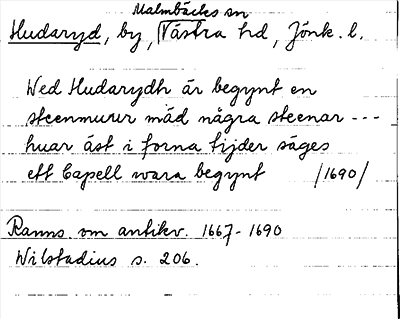 Malmbäcks sn
Hudaryd, by, Västra hd, Jönk. l.
Wed Hudarydh är begynt en
steenmurer mäd några steenar ---
huar äst i forna tijder säges
ett Capell wara begynt /1690/
Ranns. om antikv. 1667-1690
Wilstadius s. 206.